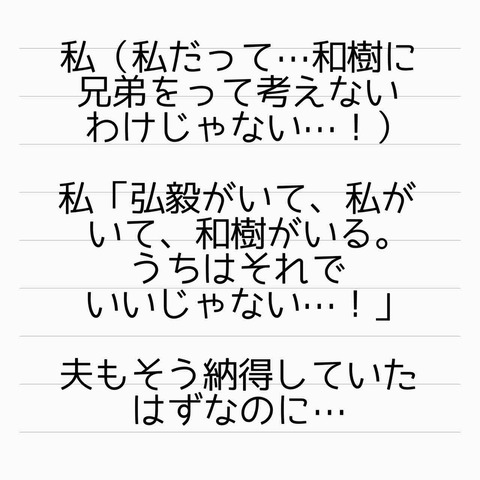 私（私だって…和樹に
兄弟をって考えない
わけじゃない…！）
私「弘毅がいて、私が
いて、和樹がいる。
うちはそれで
いいじゃない…！」
夫もそう納得していた
はずなのに…